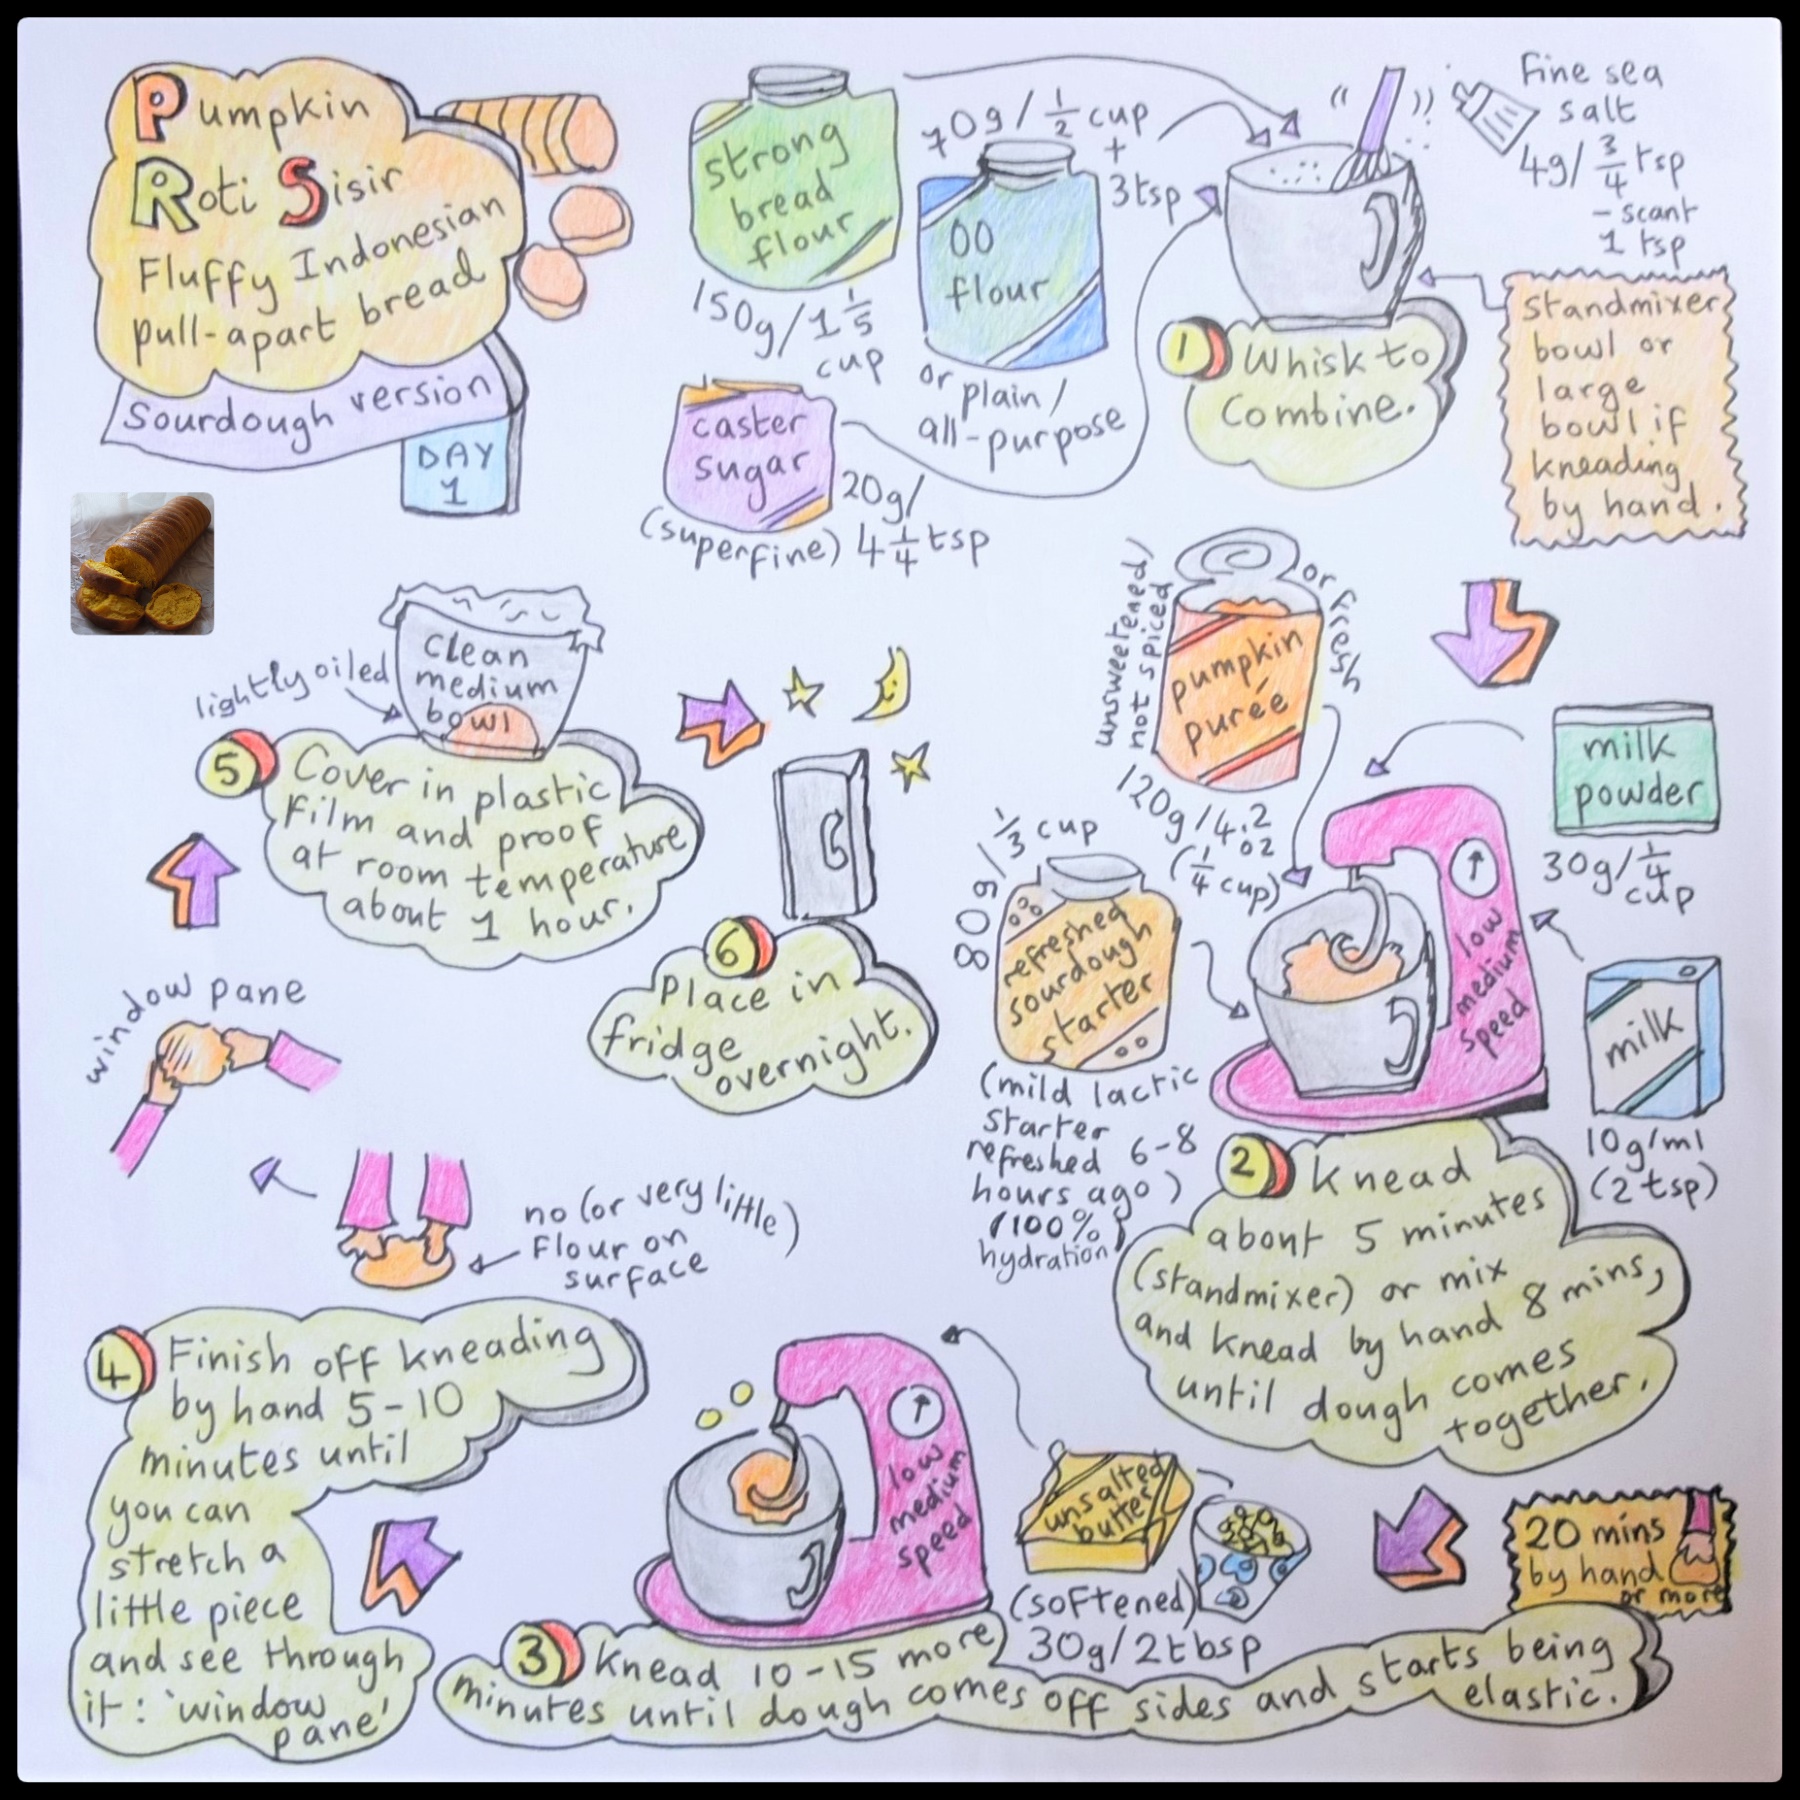 Pumpkin
Roti Sisir
Fluffy Indonesian
pull-apart bread
Sourdough version
DAY
1
strong
bread
flour
150g/1 1/5
cup
70g/ 1/2 cup
+
3tsp
00
flour
or plain/
all-purpose
caster
sugar
(superfine)
20g/
4 1/4 tsp
Fine sea
salt
4g/ 3/4 tsp
- scant
1 tsp
1 Whisk to
Combine.
standmixer
bowl or
large
bowl if
kneading
by hand.
unsweetened/
not spiced
or fresh
pumpkin
purée
120g/4.2
oz
(1/4 cup)
milk
powder
30g/ 1/4
cup
80g/ 1/3 cup
refreshed
sourdough
starter
(mild lactic
starter
refreshed 6-8
hours ago)
(100%
hydration)
low
medium
speed
milk
10g/ml
(2 tsp)
2 Knead
about 5 minutes
(standmixer) or mix
and knead by hand 8 mins,
until dough comes
together.
low
medium
speed
unsalted
butter
(softened)
30g/2tbsp
20 mins
by hand
or more
3 Knead 10-15 more
minutes until dough comes off sides and starts being
elastic.
4 Finish off kneading
by hand 5-10
minutes until
you can
stretch a
little piece
and see through
it: 'window
pane'
no (or very little)
flour on
surface
window pane
lightly oiled
Clean
medium
bowl
5 Cover in plastic
film and proof
at room temperature
about 1 hour.
6
Place in
fridge
overnight.